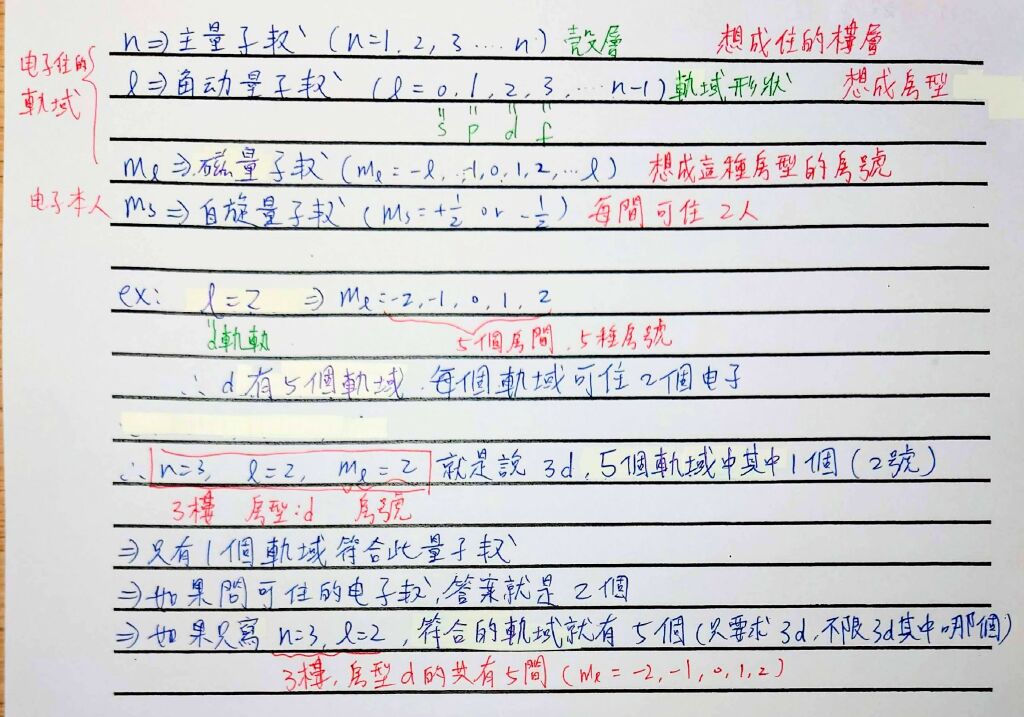 n⇒主量子数 (n=1, 2, 3 ‥‥ n) 殼層 想成住的樓層
电子住的軌域
l⇒角动量子数 (l = 0, 1, 2, 3, ‥‥ n-1) 軌域形狀 想成房型
s p d f
ml⇒磁量子数 (ml = -l, ‥-1, 0, 1, 2, … l) 想成這種房型的房號
电子本人 ms⇒自旋量子数 (ms = +1/2 or -1/2) 每間可住 2人
ex: l=2 ⇒ ml=-2, -1, 0, 1, 2
d軌軌 5個房間, 5種房號
∴ d 有 5個軌域, 每個軌域可住 2個电子
∴ n=3, l=2, ml=2 就是說 3d, 5個軌域中其中1個 (2號)
3樓 房型:d 房號
⇒只有 1個軌域符合此量子数
⇒如果問可住的电子数, 答案就是 2個
⇒如果只寫 n=3, l=2, 符合的軌域就有 5個 (只要求 3d, 不限3d其中哪個)
3樓, 房型 d 的共有 5間 (ml = -2, -1, 0, 1, 2)